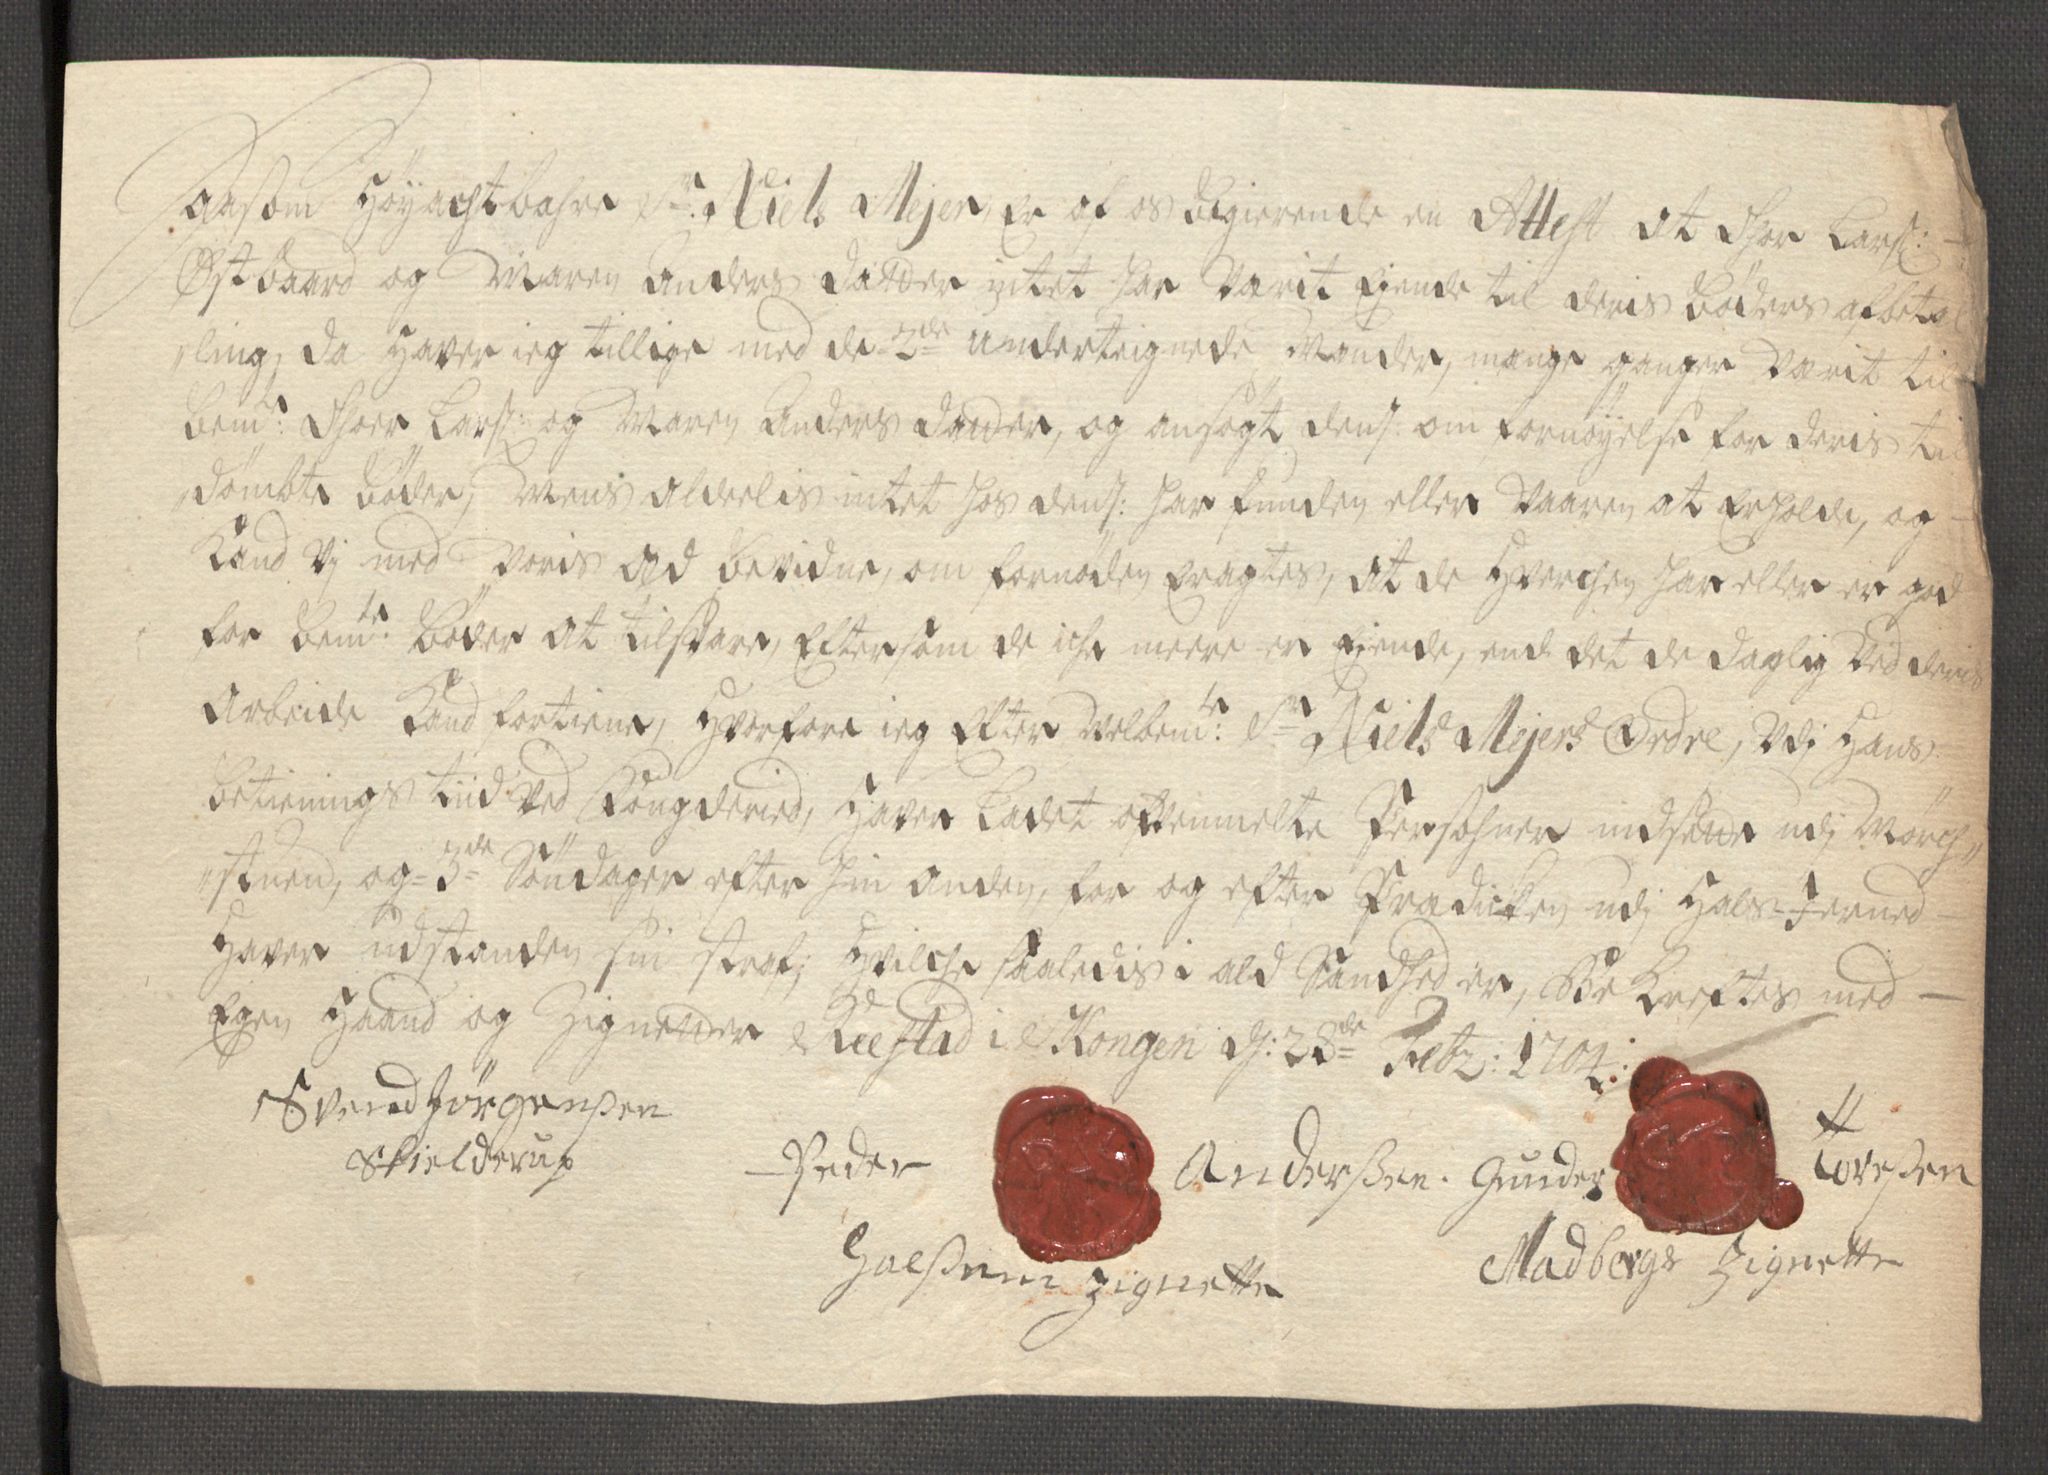 Saasom Höyachtbahre Sr. Niels Mejer, er af os begierende en Attest at Thor Larß:
Østbaard og Maren Anders Datter intet har værit Ejende til deris Böders afbetal
ling, da Haver ieg tillige med de 2de underteignede Mænder, mange ganger værit til
bemte: Thoer Larß: og Maren Anders Datter, og ansögt denß: om fornöyelse for deris til
dömbte Böder, Mens aldeelis intet hos denß: har funden eller Vaaren at Erholde, og
Kand Vj med Voris Æd bevidne, om fornöden Eragtes, at de Hverchen har eller er god
for bemte: Böder at tilsvare, Eftersom de iche meere er Ejende, end det de daglig Ved deris
Arbeide Kand fortiene, Hvorfore ieg Efter Velbemte: Sr Niels Mejers Ordre, Udj Hans
betienings tiid ved Fougderied, Haver Ladet ofvenmelte Persohner indsætte udj Mörch
stuen, og 3de Söndager efter hin anden, for og efter Prædicken udj Hals-Jerned
Haver udstanden sin straf; Hvilche saaledis i ald Sandhed er, Bekreftes med
Egen Haand og Zignetter Reestad i Skongen d: 28de Febr: 1704:
Svend Jörgenßen
Skielderup
Peder Anderßen. Gunder Toreßen
Halßem Zignette Madbergs Zignette